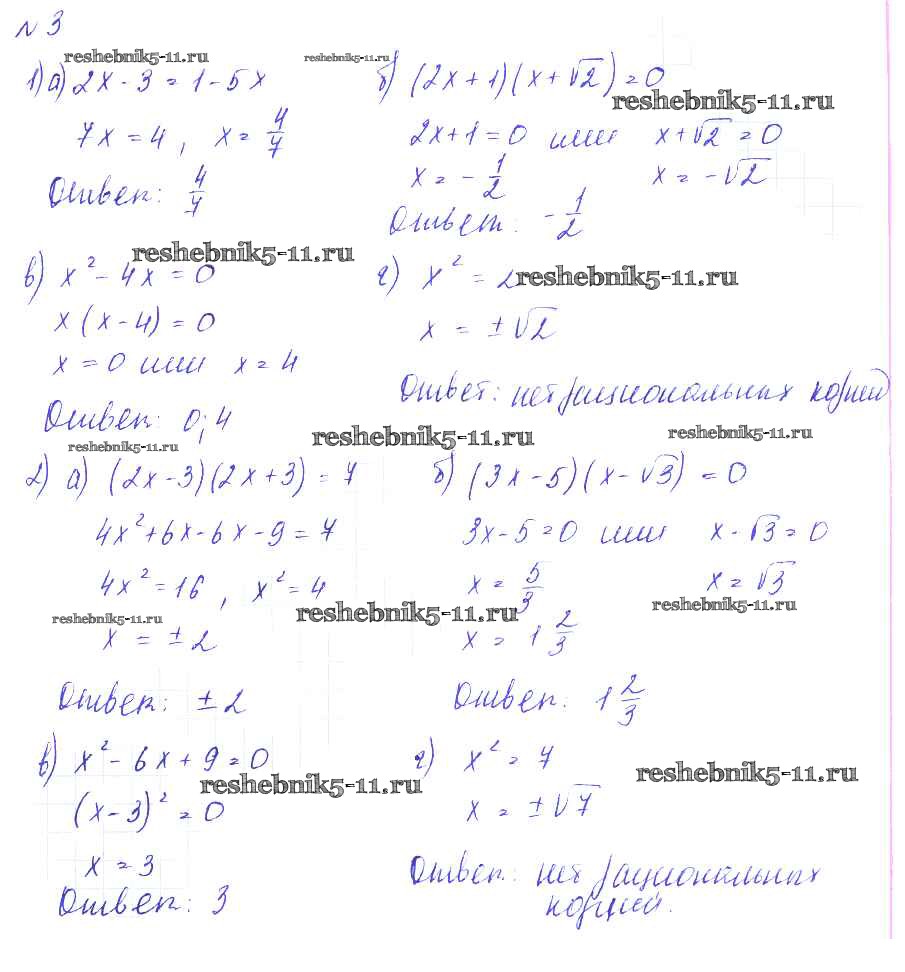 № 3
reshebnik5-11.ru
reshebnik5-11.ru
1) а) 2x - 3 = 1 - 5x
б) (2x + 1)(x + √2) = 0
reshebnik5-11.ru
7x = 4, x = 4/7
2x + 1 = 0 или x + √2 = 0
x = - 1/2 x = - √2
Ответ: 4/7
Ответ: - 1/2
reshebnik5-11.ru
в) x² - 4x = 0
г) x² = 2
reshebnik5-11.ru
x (x - 4) = 0
x = ± √2
x = 0 или x = 4
Ответ: нет рациональных корней
Ответ: 0; 4
reshebnik5-11.ru
reshebnik5-11.ru
reshebnik5-11.ru
2) а) (2x - 3)(2x + 3) = 7
б) (3x - 5)(x - √3) = 0
4x² + 6x - 6x - 9 = 7
3x - 5 = 0 или x - √3 = 0
4x² = 16, x² = 4
x = 5/3 x = √3
reshebnik5-11.ru
reshebnik5-11.ru
reshebnik5-11.ru
x = ± 2
x = 1 2/3
Ответ: ± 2
Ответ: 1 2/3
в) x² - 6x + 9 = 0
г) x² = 7
reshebnik5-11.ru
reshebnik5-11.ru
(x - 3)² = 0
x = ± √7
x = 3
Ответ: 3
Ответ: нет рациональных
корней.